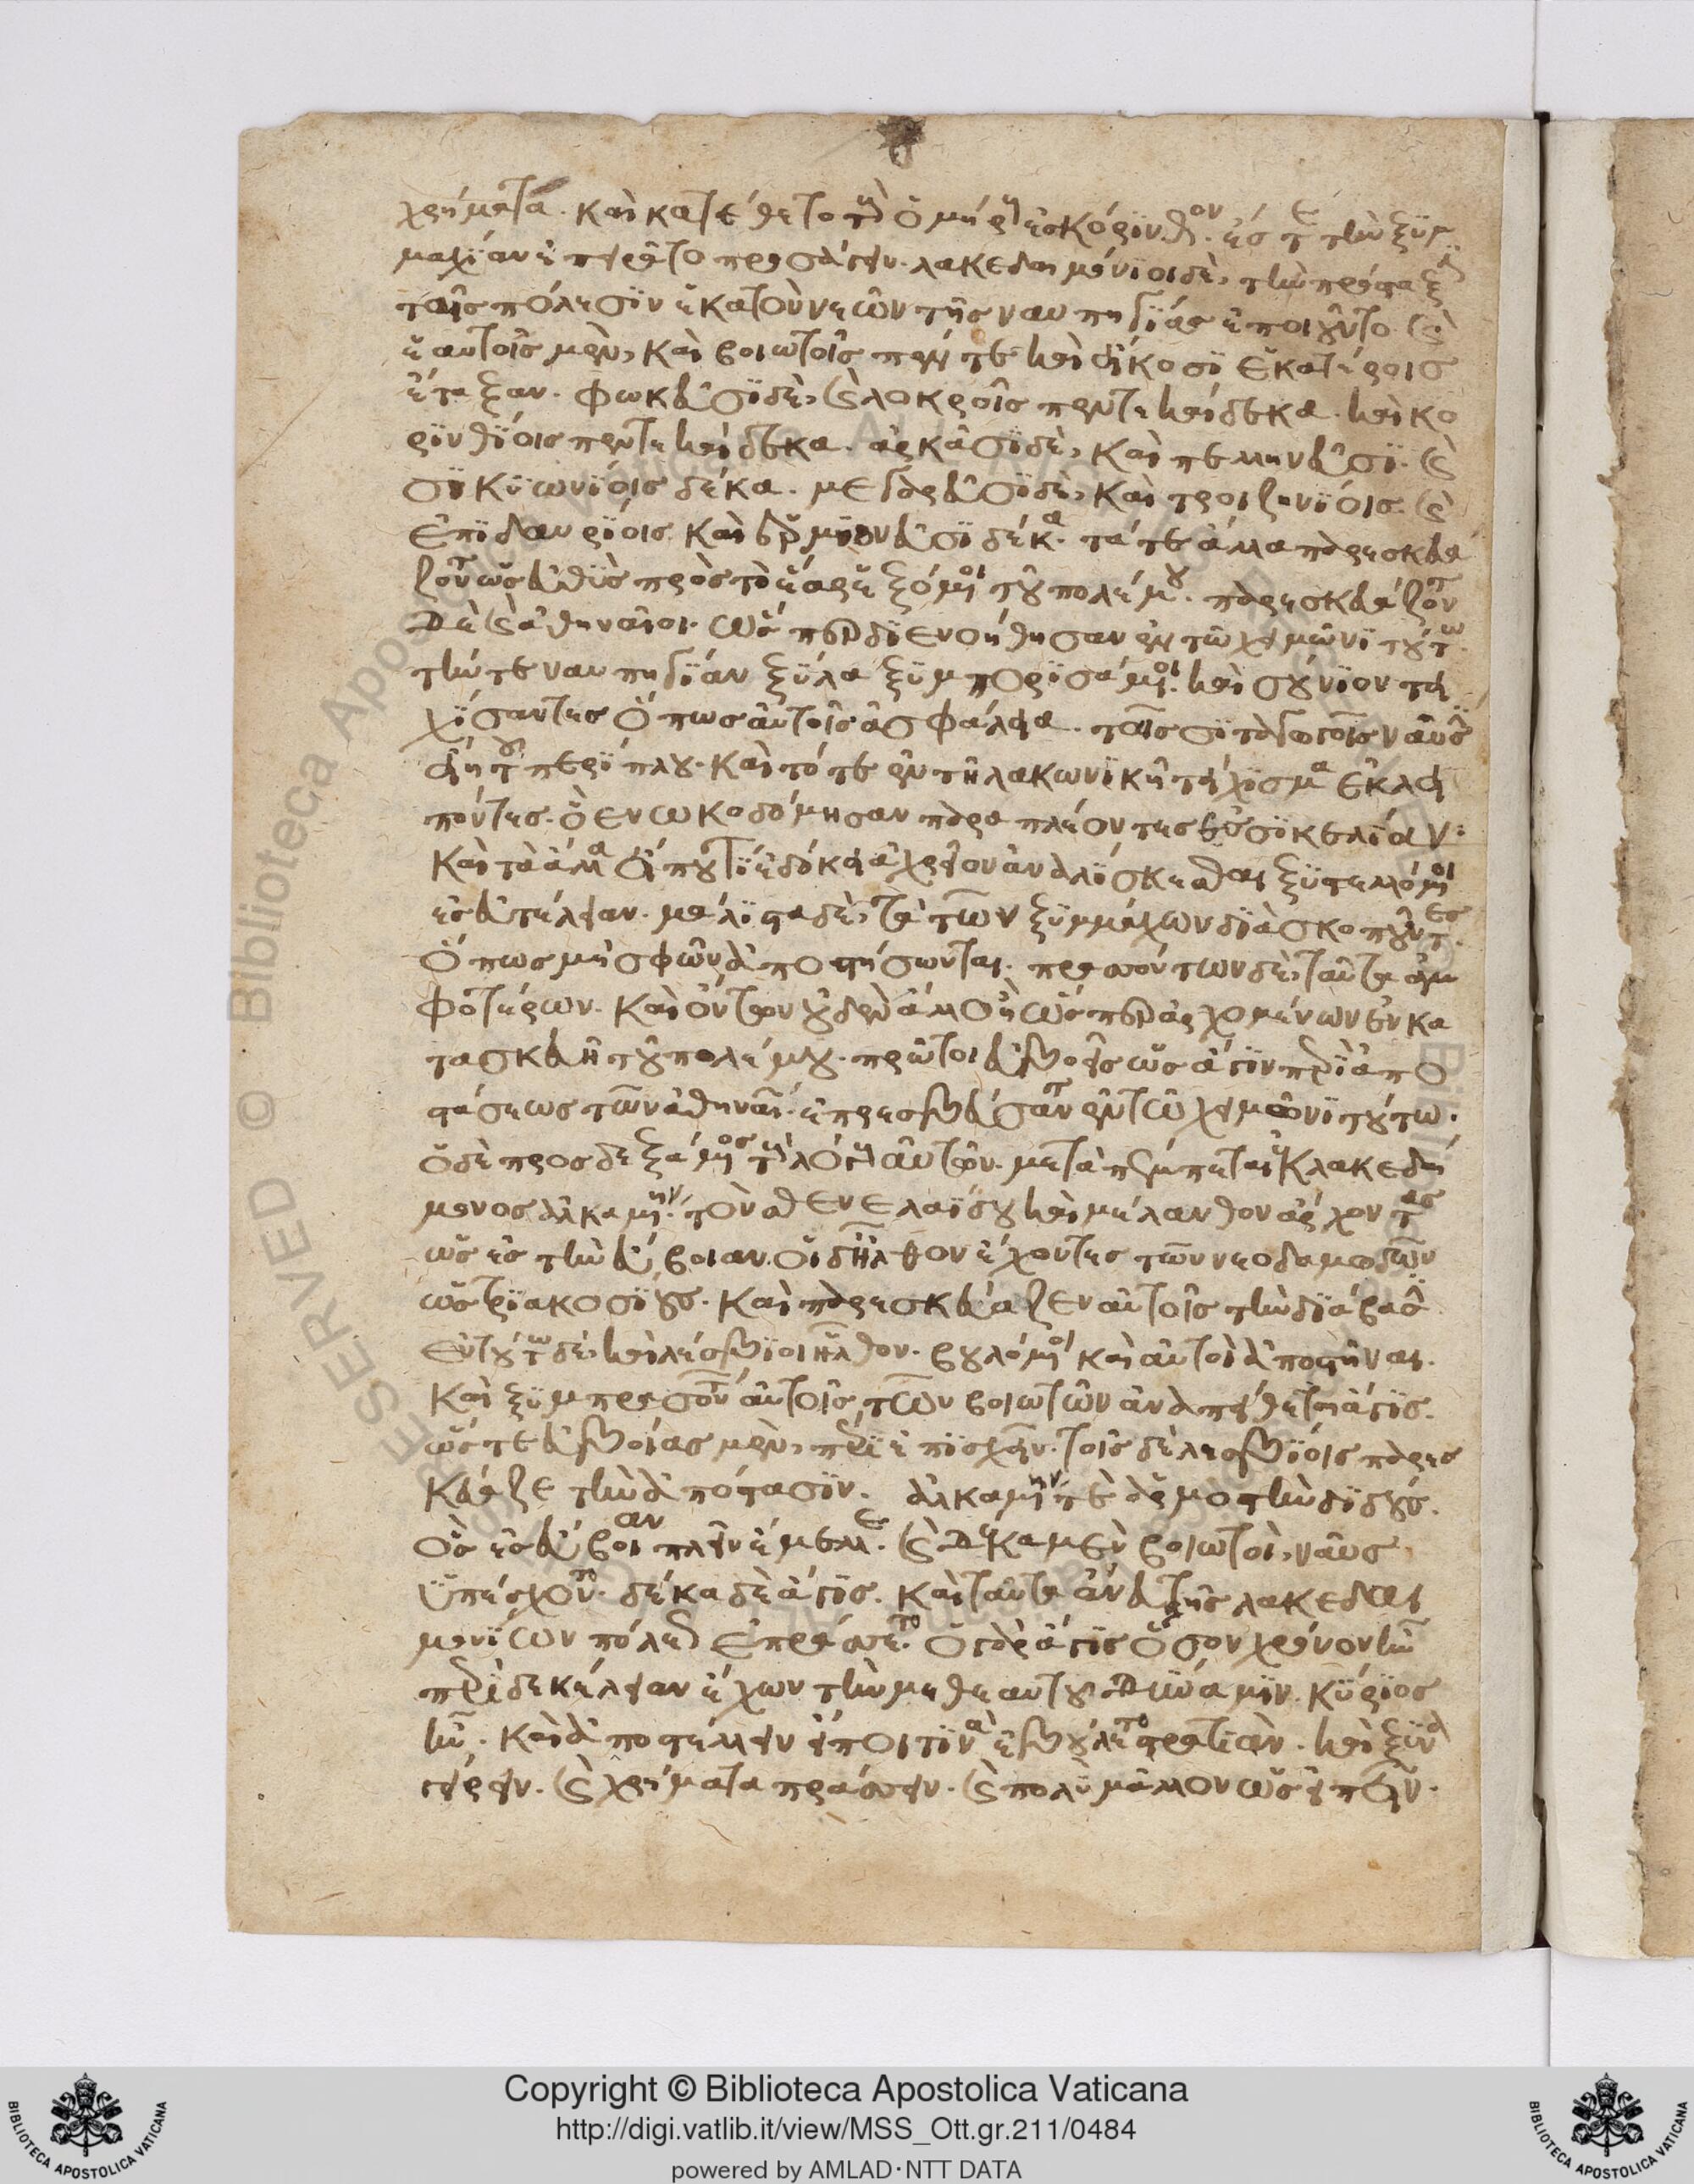 χρήματα. καὶ κατέθετο τοὺς ὁμήρους ἐς κόρινθον. ἔς τε τὴν ξυμ
μαχίαν ἐπειρᾶτο προσάγειν. λακεδαιμόνιοι δὲ, τὴν πρόσταξιν
ταῖς πόλεσιν ἑκατὸν νεῶν τῆς ναυπηγίας ἐποιοῦντο. καὶ
ἑαυτοῖς μὲν, καὶ βοιωτοῖς πέντε καὶ εἴκοσι ἑκατέροις
ἔταξαν. φωκεῦσι δὲ, καὶ λοκροῖς πεντεκαίδεκα. καὶ κο
ρινθίοις πεντεκαίδεκα. ἀρκάσι δὲ, καὶ πελληνεῦσι. καὶ
σικυωνίοις δέκα. μεγαρεῦσι δὲ, καὶ τροιζηνίοις. καὶ
ἐπιδαυρίοις καὶ ἑρμιονεῦσι δέκα. τά τε ἄλλα παρεσκευά
ζοντο ὡς εὐθὺς πρὸς τὸ ἔαρ ἑξόμενοι τοῦ πολέμου. παρεσκευάζοντο
δὲ καὶ ἀθηναῖοι. ὥσπερ διενοήθησαν ἐν τῷ χειμῶνι τούτω.
τήν τε ναυπηγίαν ξύλα ξυμπορισάμενοι. καὶ σούνιον τει
χίσαντες ὅπως αὐτοῖς ἀσφάλεια. ταῖς σιταγωγοῖς ναυσὶν
εἴη τοῦ περίπλου. καὶ τό τε ἐν τῇ λακωνικῇ τείχισμα ἐκλει
πόντες. ὃ ἐνωκοδόμησαν παραπλέοντες ἐς σικελίαν:
καὶ τὰ ἄλλα εἴ πού τι ἐδόκει ἀχρεῖον ἀναλίσκεσθαι ξυστελλόμενοι
ἐς εὐτέλειαν. μάλιστα δὲ, τὰ τῶν ξυμμάχων διασκοποῦντες
ὅπως μὴ σφῶν ἀποστήσωνται. πρασσόντων δὲ, ταῦτα ἀμ
φοτέρων. καὶ ὄντων οὐδὲν ἄλλο ἢ ὥσπερ ἀρχομένων ἐν κα
τασκευῇ τοῦ πολέμου. πρῶτοι εὐβοεῖς ὡς ἄγιν περὶ ἀπο
στάσεως τῶν ἀθηναίων. ἐπρεσβεύσαντο ἐν τῷ χειμῶνι τούτω.
ὁ δὲ προσδεξάμενος τοὺς λόγους αὐτῶν. μεταπέμπεται ἐκ λακεδαί
μονος ἀλκαμένην. τὸν σθενελαΐδου καὶ μέλανθον ἄρχοντας
ὡς ἐς τὴν εὔβοιαν. οἱ δ' ἦλθον ἔχοντες τῶν νεοδαμωδῶν
ὡς τριακοσίους. καὶ παρεσκεύαζεν αὐτοῖς τὴν διάβασιν
ἐν τούτω δὲ, καὶ λέσβιοι ἦλθον. βουλόμενοι καὶ αὐτοὶ ἀποστῆναι.
καὶ ξυμπρασσόντων αὐτοῖς τῶν βοιωτῶν ἀναπείθεται ἄγις.
ὥστε εὐβοίας μὲν, πέρι ἐπισχεῖν. τοῖς δὲ λεσβίοις παρεσ
κεύαζε τὴν ἀπόστασιν. ἀλκαμένην τε ἁρμοστὴν διδούς.
ὃς ἐς εὔβοιαν πλεῖν ἔμελλε. καὶ δέκα μὲν βοιωτοὶ, ναῦς
ὑπέσχοντο. δέκα δὲ ἄγις. καὶ ταῦτα ἄνευ τῆς λακεδαι
μονίων πόλεως ἐπράσσετο. ὁ γὰρ ἄγις ὅσον χρόνον ἦν
περὶ δεκέλειαν ἔχων τὴν μεθ' ἑαυτοῦ δύναμιν. κύριος
ἦν. καὶ ἀποστέλλειν εἴ ποι τινὰ ἐβούλετο στρατιὰν. καὶ ξυνα
γείρειν. καὶ χρήματα πράσσειν. καὶ πολὺ μᾶλλον ὡς εἰπεῖν.
Copyright © Biblioteca Apostolica Vaticana
http://digi.vatlib.it/view/MSS_Ott.gr.211/0484
powered by AMLAD·NTT DATA
BIBLIOTECA APOSTOLICA VATICANA
BIBLIOTECA APOSTOLICA VATICANA